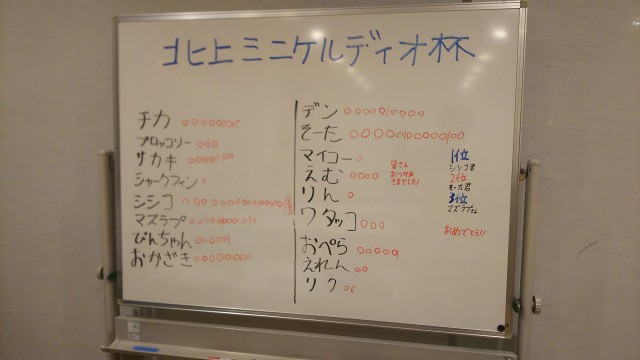 北上ミニケルディオ杯
チカ ○○○○○○○○
ブロッコリー ○○○
サカキ
シャークフィン ○
シシコ
マズラプ
ぴんちゃん
おかざき
デン
そーた
マイコー ○
えむ ○○○○
りん ○
ワタッコ ○○○
おぺら ○○○○○
えれん ○○
リク ○○
皆さん
おつかれ
さまでした!
1位
シシコ君
2位
そーた君
3位
マズラプさん
おめでとう!!